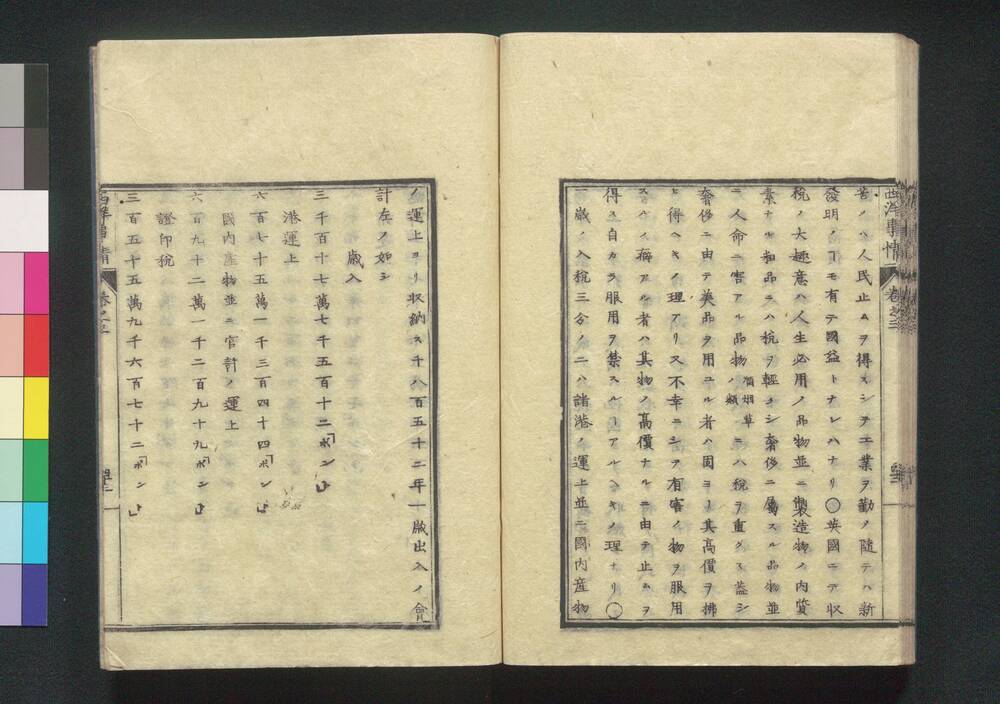 西洋事情二 巻之三
苦ノハ人民止ムヲ得スシテ工業ヲ勤ノ隨テハ新
發明ノヿモ有テ國益トナレハナリ○英國ニテ収
税ノ大趣意ハ人生必用ノ品物並ニ製造物ノ内質
素ナル物品ニハ税ヲ輕クシ奢侈ニ屬スル品物並
ニ人命ニ害アル品物 酒烟草ノ類 ニハ税ヲ重クス蓋シ
奢侈ニ由テ美品ヲ用ユル者ハ固ヨリ其高價ヲ拂
ヒ得ヘキノ理アリ又不幸ニシテ有害ノ物ヲ服用
スルノ癖アル者ハ其物ノ高價ナルニ由テ止ムヲ
得ス自カラ服用ヲ禁スルヿアルヘキノ理ナリ○
一歳ノ入税三分ノ二ハ諸港ノ運上並ニ國内産物
ノ運上ヨリ収納ス千八百五十二年一歳出入ノ會
計左ノ如シ
歳入
三千百十七萬七千五百十二「ポンド」
港運上
六百七十五萬一千三百四十四「ポンド」
國内産物並ニ官許ノ運上
六百九十二萬一千二百九十九「ポンド」
證印税
三百五十五萬九千六百七十二「ポンド」
西洋事情 巻之三